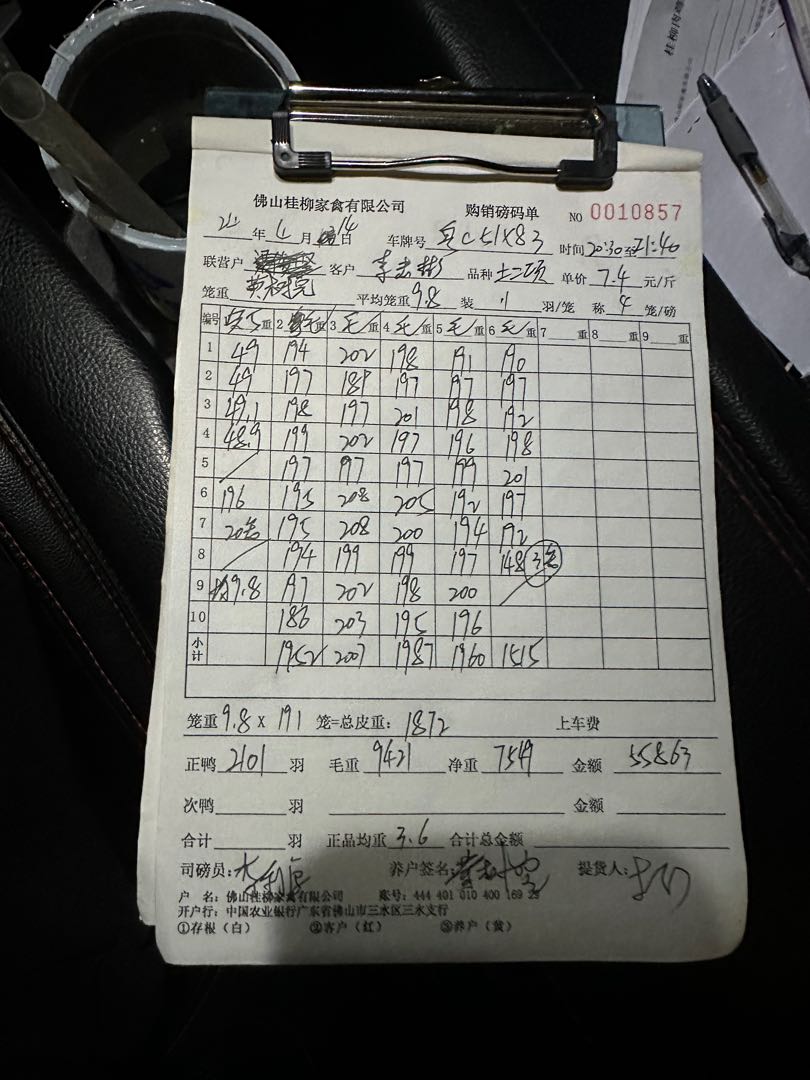 佛山桂柳家禽有限公司 购销磅码单 NO 0010857
年 4 月 14 日 车牌号 粤C51X83 时间 20:30 至 21:40
联营户 客户 品种 土二项 单价 7.4 元/斤
笼重 平均笼重 9.8 装 11 羽/笼 称 4 笼/磅
编号 重 2 毛 重 3 毛 重 4 毛 重 5 毛 重 6 毛 重 7 重 8 重 9 重
1 49 194 202 198 191 190
2 49 197 189 197 197 197
3 49.1 198 197 201 198 192
4 48.9 199 202 197 196 198
5 197 197 197 199 201
6 196 195 208 205 192 197
7 20笼 195 208 200 194 192
8 194 199 199 197 148 3笼
9 均9.8 197 202 198 200
10 186 203 195 196
小计 1952 2007 1987 1960 1515
笼重 9.8 X 191 笼=总皮重: 1872 上车费
正鸭 2101 羽 毛重 9421 净重 7549 金额 55863
次鸭 羽 金额
合计 羽 正品均重 3.6 合计总金额
司磅员: 养户签名: 提货人:
户 名: 佛山桂柳家禽有限公司 账号: 444 401 010 400 169 25
开户行: 中国农业银行广东省佛山市三水区三水支行
①存根(白) ②客户(红) ③养户(黄)